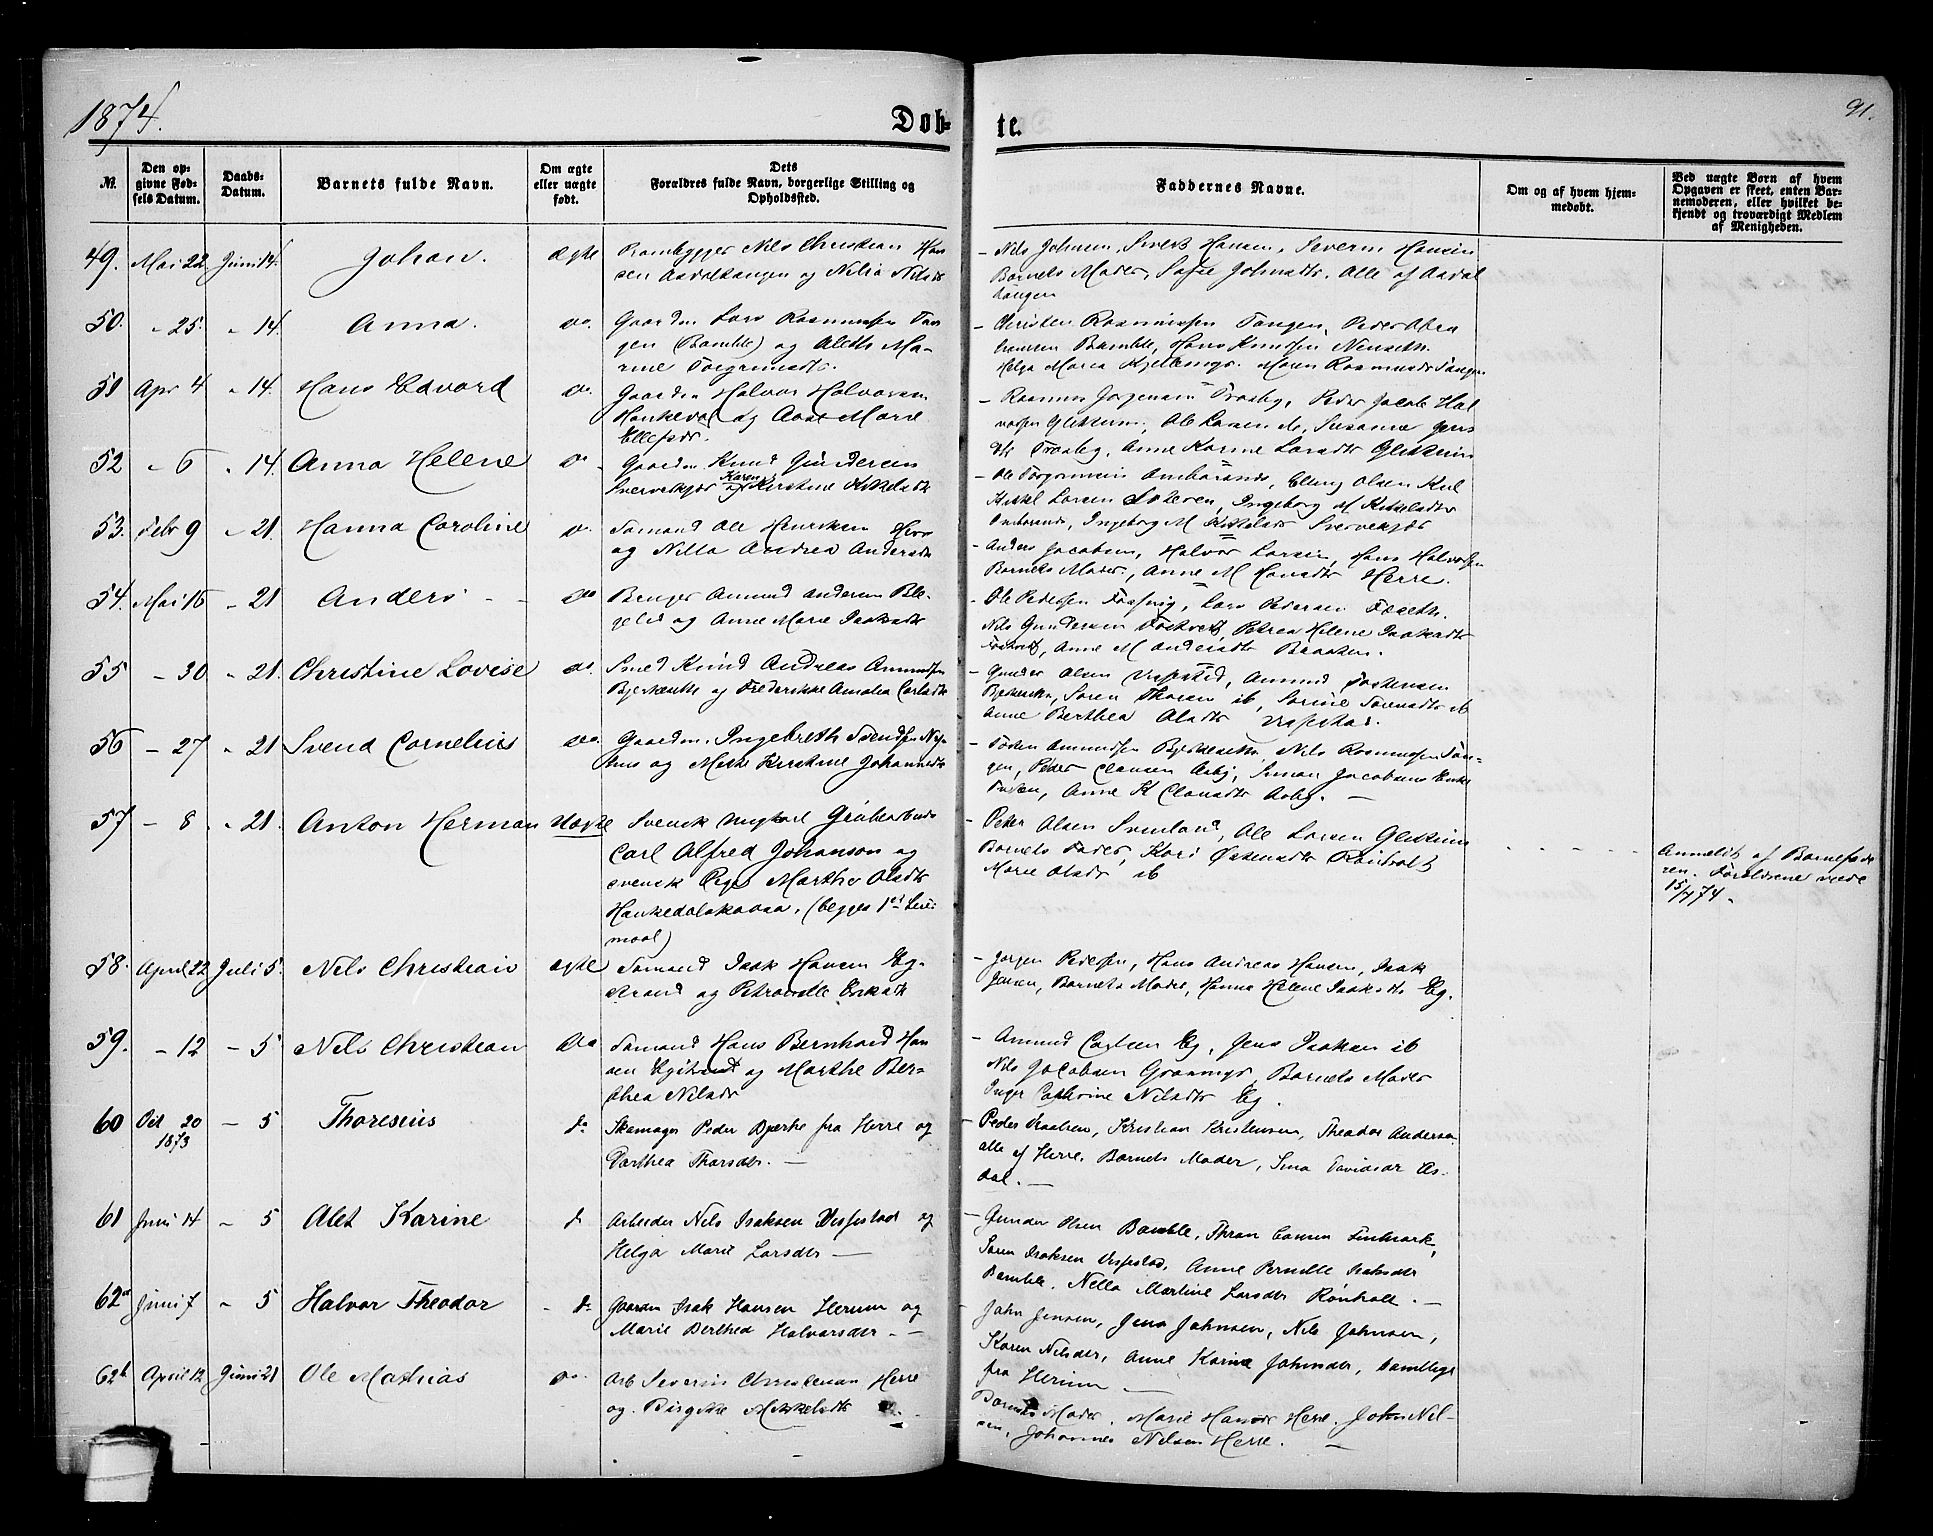 1874.
Døb-
te.
91.
№
Den op-
givne Fød-
sels Datum.
Daabs-
Datum.
Barnets fulde Navn.
Om ægte
eller uægte
født.
Dets
Forældres fulde Navn, borgerlige Stilling og
Opholdssted.
Faddernes Navne.
Om og af hvem hjem-
medøbt.
Ved uægte Børn af hvem
Opgaven er skeet, enten Bar-
nemoderen, eller hvilket be-
kjendt og troværdigt Medlem
af Menigheden.
49. Mai 22 Juni 14. Johan. ægte
Nils Christian Han
sen og Nilia Nilsdt
- Nils Johnsen, Sivert Hansen, Severin Hansen
Barnets Moder, Sofie Johnsdtr. Alle af Aadal
tangen
50. " 25. " 14. Anna. do.
Gaardm Lars Rasmussen Tan
gen (Bamble) og Aleth Ma-
rine Torgrimsdtr.
- Christen Rasmussen Tangen, Peder Abra
hamsen Bamble, Hans Knudsen
Helga Maria Maren Rasmusdtr Tangen
51 Apr 4 " 14. Hans Edvard do.
Gaardm Halvor Halvorsen
Hankevol og Aase Marie
Ellefsdtr.
- Rasmus Jørgensen Traaby, Peder Jacob Hal
vorsen Ole Larsen do, Susanne Jens
dtr Traaby, Anne Karine Larsdtr
52 " 6 " 14. Anna Helene do
Gaardm Knud Gundersen
og Karen Kirstine Kittelsdt
- Ole Torgrimsen Omborsnes, Elling Olsen
Kittel Larsen Ingeborg M Kittelsdtr
Omborsnes, Ingeborg M Kittelsdtr
53. Febr 9 " 21. Hanna Caroline do.
Sømand Ole Henriksen Herre
og Nilla Andrea Andersdt
- Anders Jacobsen, Halvor Larsen, Hans Halvorsen
Barnets Moder, Anne M Hansdtr Herre.
54. Mai 16 " 21 Anders do
Amund Andersen
og Anne Marie Isaksdtr
- Ole Pedersen Lars Pedersen
Nils Gundersen Petrea Helene Isaksdtr
Anne M Andersdtr Braaten.
55 - 30 " 21. Christine Lovise do.
Smed Knud Andreas Amundsen
og Frederikke Amalia Carlsdt
- Gunder Olsen Vissestad, Amund Torstensen
Søren Thorsen ib, Sørine Sørensdtr ib
Anne Berthea Olsdtr Vissestad.
56 - 27 " 21 Svend Cornelius do.
Gaardm. Ingebreth Svendsen Nys
hus og Mette Kirstine Johannesdt
- Torsten Amundsen Nils Rasmussen Tan-
gen, Peter Clausen Aaby, Simon Jacobsen
Anne K Clausdtr Aaby.
57 - 8 " 21. Anton Herman uægte
Svensk ungkarl Grubearbeider
Carl Alfred Johanson og
svensk Pige Marthe Olsdtr
(begges 1ste Leier-
maal)
- Peter Olsen Ole Larsen
Barnets Fader, Kari Østensdtr
Marie Olsdtr ib
Anmeldt af Barnefade
ren. Forældrene viede
15/7 74.
58. April 22 Juli 5. Nils Christian ægte
Sømand Isak Hansen Eg-
strand og Petronelle Eriksdt
- Jørgen Pedersen, Hans Andreas Hansen, Isak
Jensen, Barnets Moder, Hanna Helene Isaksdtr Eg.
59. - 12 - 5 Nils Christian do
Sømand Hans Bernhard Han
sen Egstrand og Marthe Ber-
thea Nilsdtr
- Amund Carlsen Eg, Jens Isaksen ib
Nils Jacobsen Barnets Moder
Inger Cathrine Nilsdtr Eg.
60 Oct 20
1873 - 5 Thoresius do
Skomager Peder Bjerke fra Herre og
Dorthea Thorsdtr. —
- Peder Isaksen, Kristian Kristensen, Theodor Anderson
alle af Herre, Barnets Moder, Sina Davidsdr As-
dal. —
61 Juni 14 - 5 Alet Karine do
Arbeider Nils Isaksen Vissestad og
Helga Marie Larsdtr —
- Gunder Olsen Bamble, Thron Larsen Finmark,
Søren Isaksen Vissestad, Anne Pernille Isaksdtr
Bamble, Nella Martine Larsdtr Rønholt. —
62a Juni 7 - 5 Halvor Theodor - do
Gaardm Isak Hansen Herum og
Marie Berthea Halvorsdtr. —
- John Jensen, Jens Johnsen, Nils Johnsen,
Karen Nilsdtr, Anne Karine Johnsdtr, samtlige
fra Herum —
62b April 12 Juni 21 Ole Mathias do.
Arb Severin Christensen Herre
og Birgitte Mikkelsdtr
Barnets Moder, Marie Hansdtr Herre, John Nil-
sen, Johannes Nilsen Herre. —